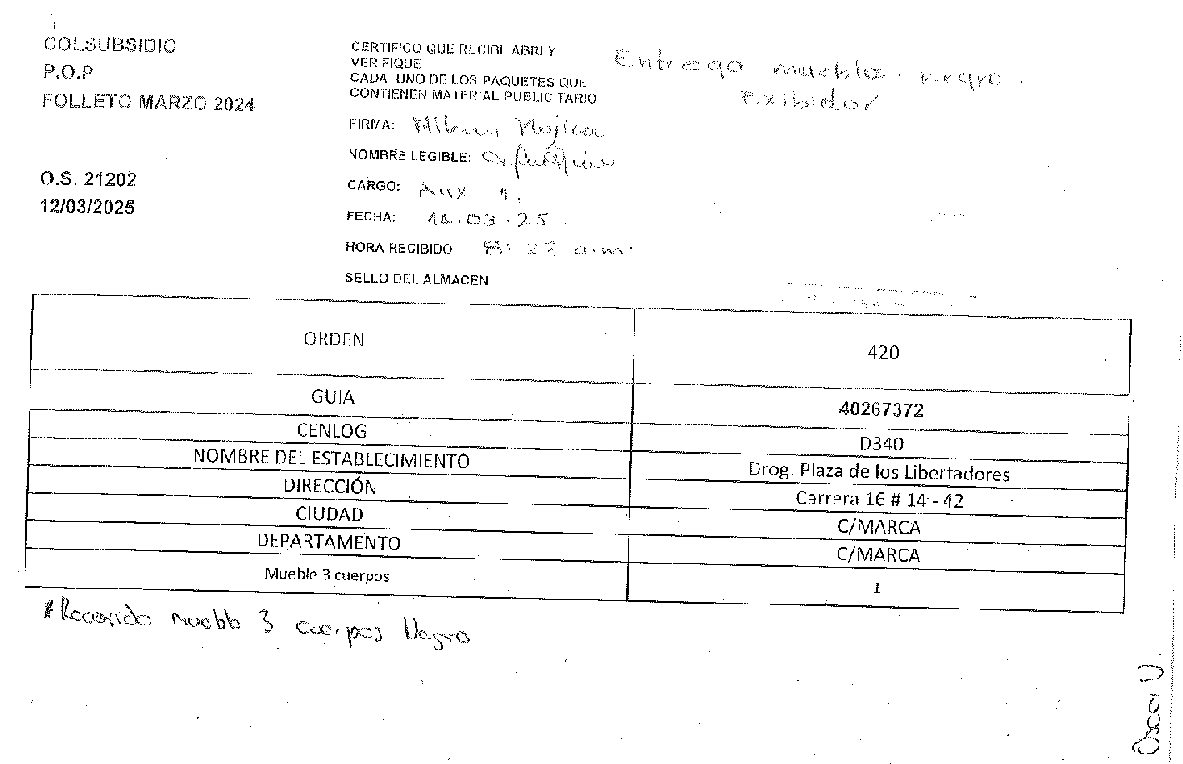 COLSUBSIDIO
P.O.P
FOLLETO MARZO 2024
O.S. 21202
12/03/2025
CERTIFICO QUE RECIBI ABRI Y
VERIFIQUE
CADA UNO DE LOS PAQUETES QUE
CONTIENEN MATERIAL PUBLICITARIO
FIRMA:
NOMBRE LEGIBLE:
CARGO: Aux 1.
FECHA: 03-25
HORA RECIBIDO 22 a.m.
SELLO DEL ALMACEN
Entrego mueble negro.
Exibidor
ORDEN 420
GUIA 40267372
CENLOG D340
NOMBRE DEL ESTABLECIMIENTO Drog. Plaza de los Libertadores
DIRECCIÓN Carrera 16 # 14 - 42
CIUDAD C/MARCA
DEPARTAMENTO C/MARCA
Mueble 3 cuerpos 1
*Recogido mueble 3 cuerpos Negro
Oscar V.